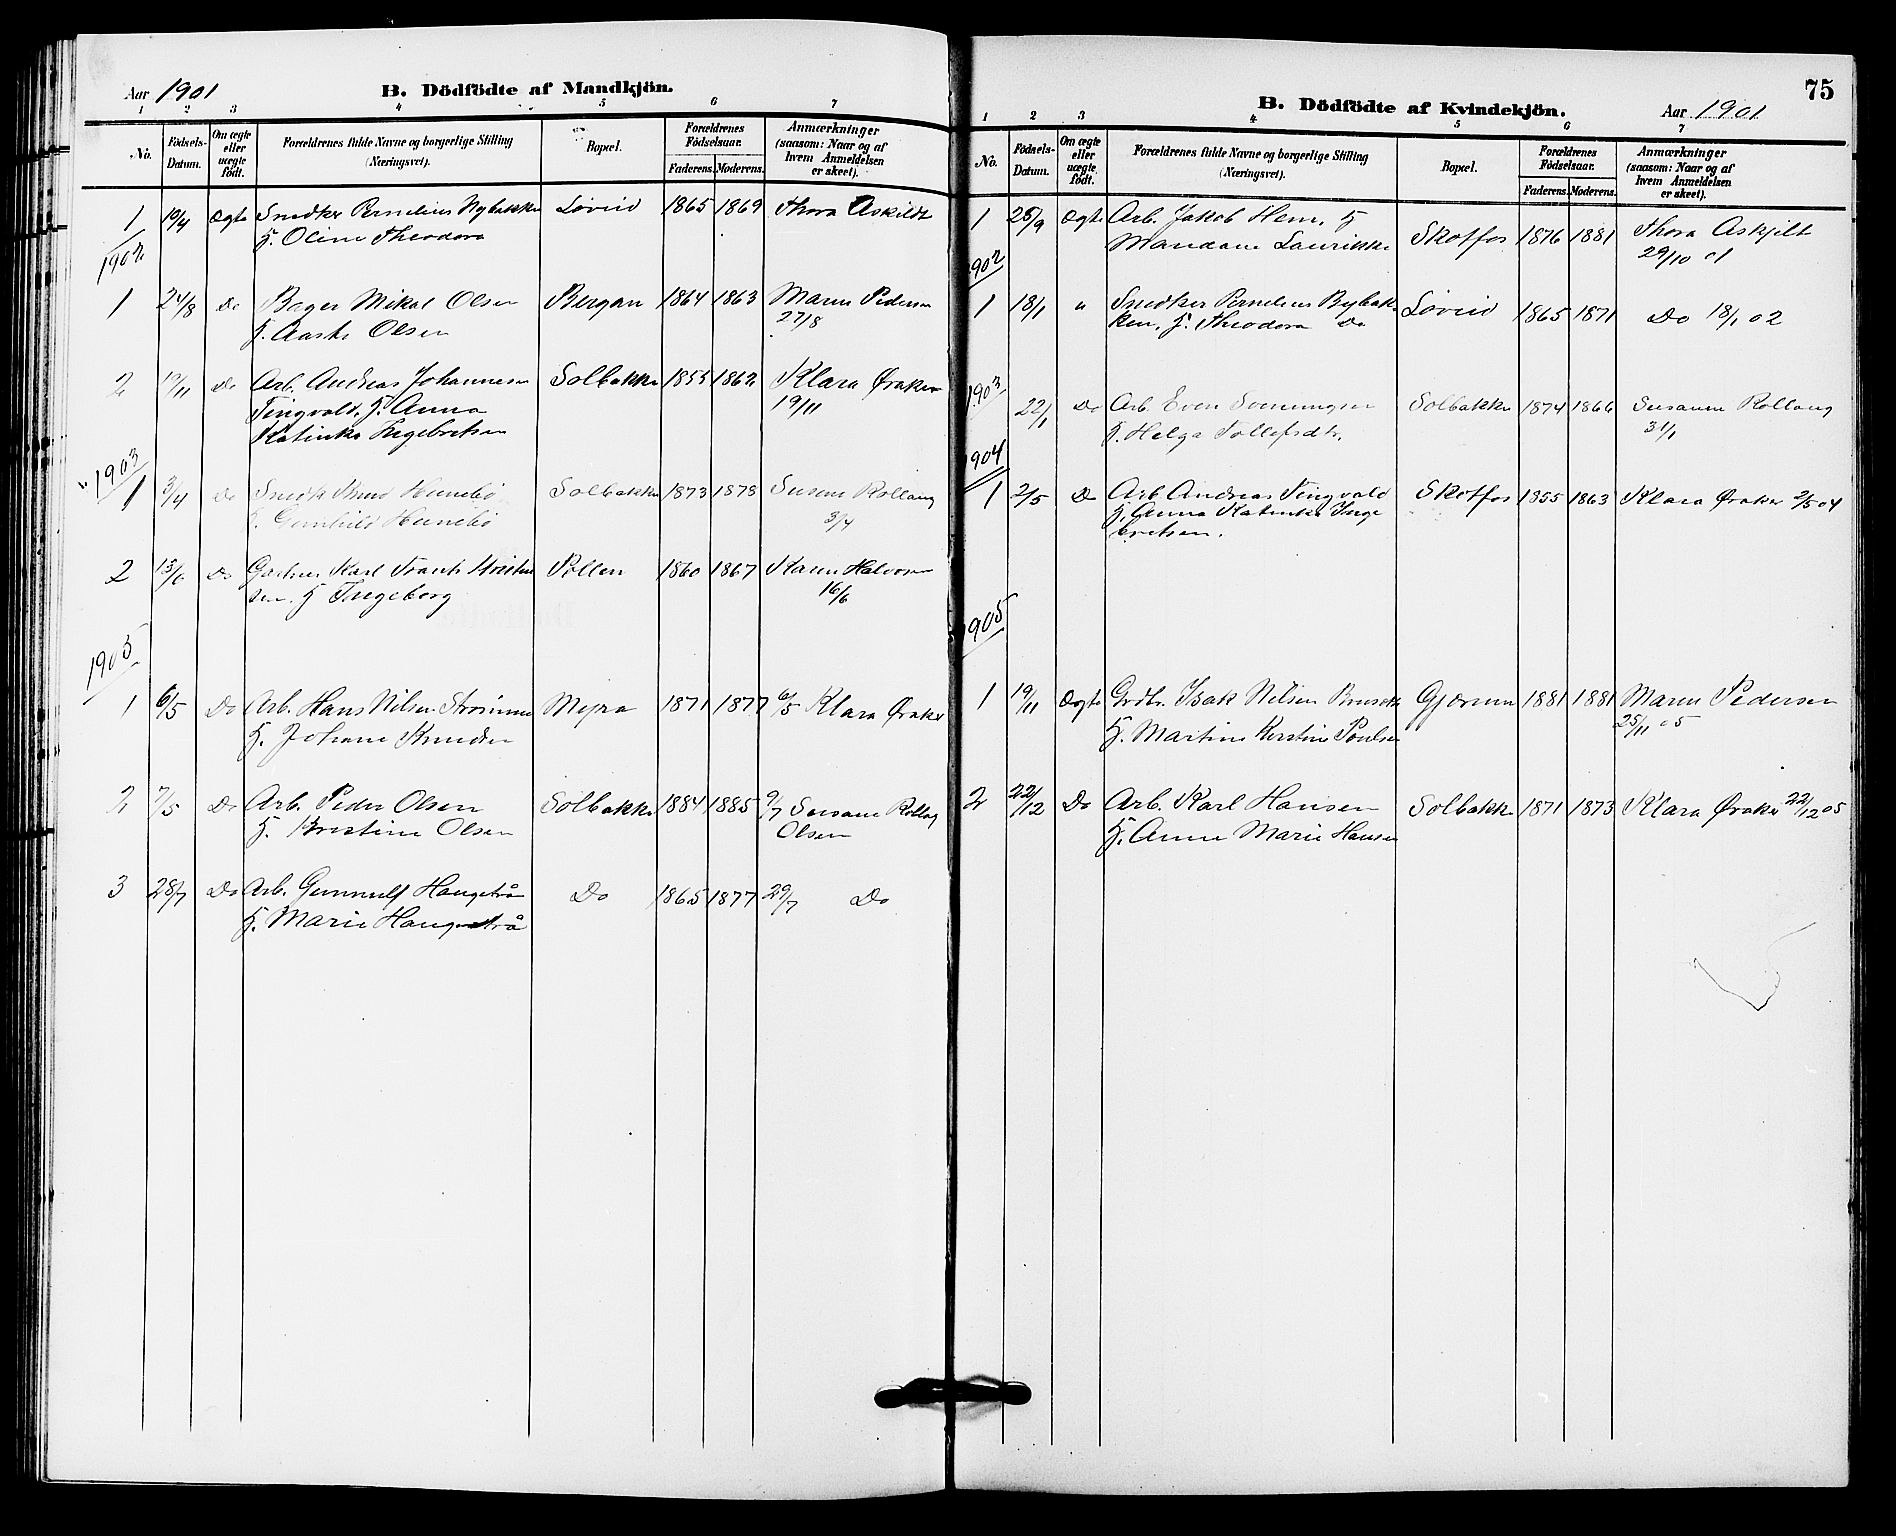 Aar 1901
B. Dödfödte af Mandkjön.
1 2 3 4 5 6 7
No.
Födsels-Datum.
Om ægte eller uægte födt.
Forældrenes fulde Navne og borgerlige Stilling (Næringsvei).
Bopæl.
Forældrenes Födselsaar.
Faderens. Moderens.
Anmærkninger (saasom: Naar og af hvem Anmeldelsen er skeet).
1 10/4 Ægte Snedker Pernelius Nybakken Løveid 1865 1869 Thora Askildt
H. Oline Theodora
1902
1 24/8 Do Bager Mikal Olsen Bergan 1864 1863 Maren Pedersen
H. Aaste Olsen 27/8
2 19/11 Do Arb. Andreas Johannesen Solbakke 1855 1862 Klara Øraker
Tingvald. H. Anna 19/11
Katinka Ingebretsen
1903
1 3/4 Do Snedk Knud Hunebø Solbakke 1873 1873 Susane Rollang
H. Gunhild Hunebø 3/4
2 13/6 Do Gartner Karl Frants Kristen Pollen 1860 1867 Karen Halvorsen
sen. H Ingeborg 16/6
1905
1 6/5 Do Arb. Hans Nilsen Strømme Myra 1871 1877 6/5 Klara Øraker
H. Johane Knudsen
2 7/5 Do Arb. Peder Olsen Solbakke 1884 1885 9/7 Susane Rollag
H. Kristine Olsen Olsen
3 28/7 Do Arb. Gunnulf Haugetrå Do 1865 1877 29/7 Do
H. Marie Haugetrå
75
B. Dödfödte af Kvindekjön.
Aar 1901
1 2 3 4 5 6 7
No.
Födsels-Datum.
Om ægte eller uægte födt.
Forældrenes fulde Navne og borgerlige Stilling (Næringsvei).
Bopæl.
Forældrenes Födselsaar.
Faderens. Moderens.
Anmærkninger (saasom: Naar og af hvem Anmeldelsen er skeet).
1 25/9 Ægte Arb. Jakob Hem, H Skotfos 1876 1881 Thora Askjilt
Mandane Laurikke 29/10 01
1902
1 18/1 " Snedker Pernelius Bybak- Løveid 1865 1871 Do 18/1 02
ken, H. Theodora Do
1903
22/1 Do Arb. Even Svenningsen Solbakke 1874 1866 Susanne Rollang
H. Helga Tollefsdtr. 31/1
1904
1 2/5 Do Arb. Andreas Tingvald Skotfos 1855 1863 Klara Øraker 2/5 04
H. Anna Katinka Inge
bretsen.
1905
1 19/11 Ægte Grdbr. Isak Nilsen Gjærum 1881 1881 Maren Pedersen
H. Martine Kerstine Poulsen 25/11 05
2 22/12 Do Arb. Karl Hansen Solbakke 1871 1873 Klara Øraker 22/12 05
H. Anne Marie Hansen